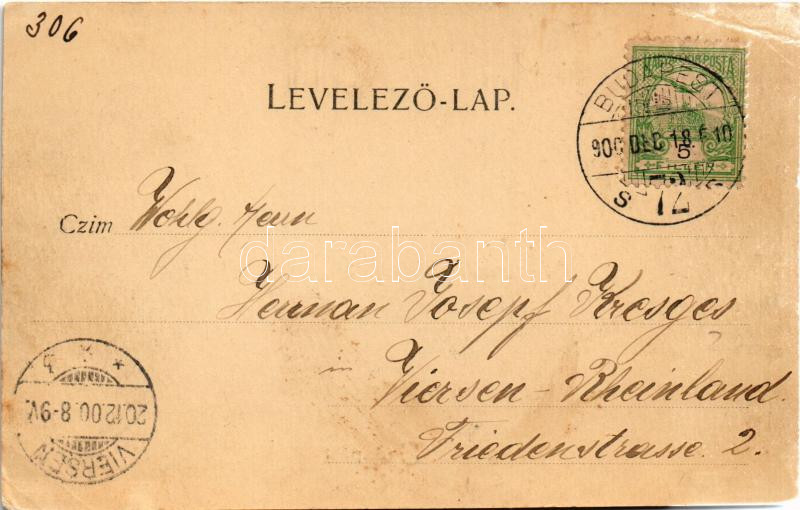 306
LEVELEZŐ-LAP.
MAGYAR KIR. POSTA
5
FILLÉR
BUDAPEST
900 DEC 18
72
S
Czim Wohlg. Herrn
Herman Josepf Kresges
in
Viersen - Rheinland.
Friedenstrasse 2.
VIERSEN
20.12.00.8-9V.
* * *
darabanth